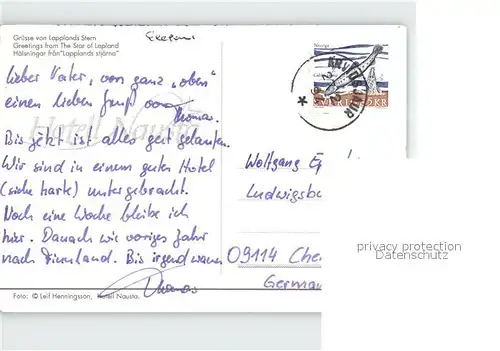 Grüsse von Lapplands Stern
Greetings from The Star of Lapland
Hälsningar från "Lapplands stjärna"
Lieber Vater, von ganz "oben"
einen lieben Gruß von
Thomas.
Bis jetzt ist alles gut gelaufen.
Wir sind in einem guten Hotel
(siehe Karte) untergebracht.
Noch eine Woche bleibe ich
hier. Danach wie voriges Jahr
nach Finnland. Bis irgendwann
Thomas
Hotell Nausta
Foto: © Leif Henningsson, Hotell Nausta.
Norge
SVERIGE
Wolfgang
Ludwigsb
09114 Che
German
privacy protection
Datenschutz